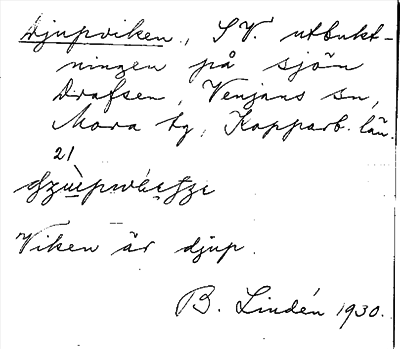 Djupviken, SV. utbukt-
ningen på sjön
Drafsen, Venjans sn,
Mora tg, Kopparb. län.
21
Viken är djup.
B. Lindén 1930.